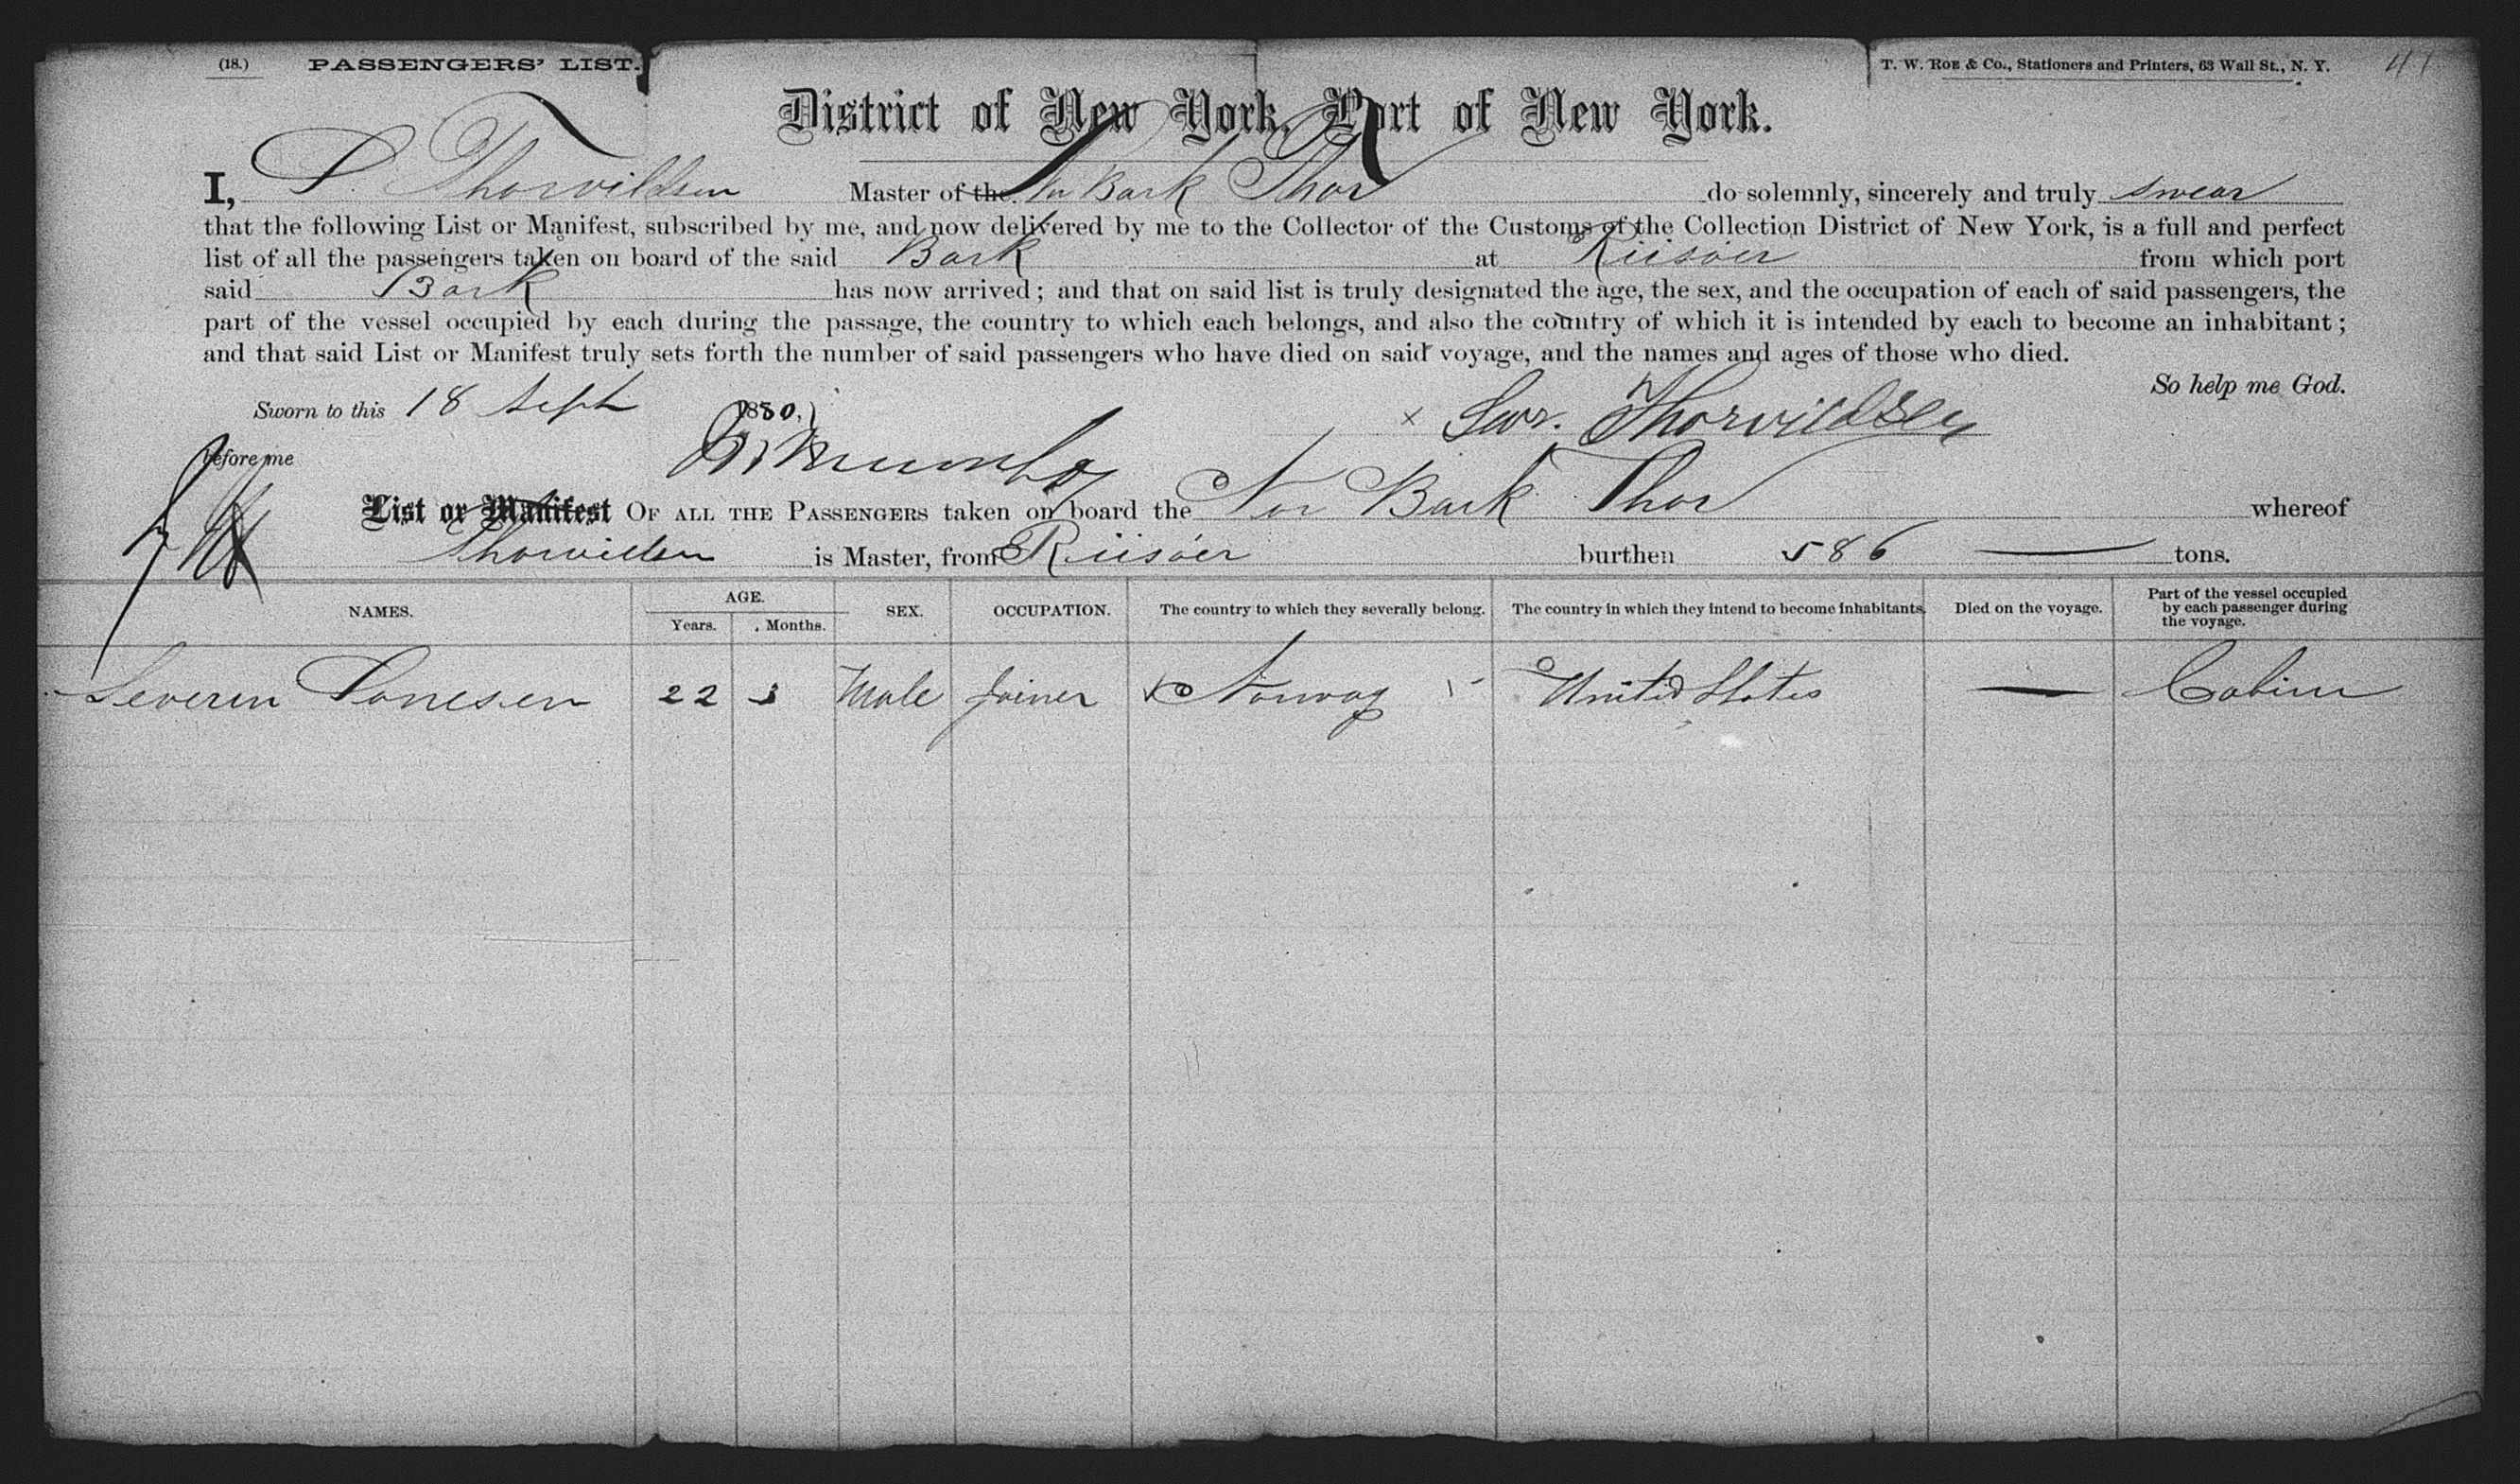 (18.) PASSENGERS' LIST. T. W. ROE & Co., Stationers and Printers, 63 Wall St., N. Y. 41
District of New York, Port of New York.
I, S. Thorvildsen Master of the Nor Bark Thor do solemnly, sincerely and truly swear
that the following List or Manifest, subscribed by me, and now delivered by me to the Collector of the Customs of the Collection District of New York, is a full and perfect
list of all the passengers taken on board of the said Bark at Riisöer from which port
said Bark has now arrived; and that on said list is truly designated the age, the sex, and the occupation of each of said passengers, the
part of the vessel occupied by each during the passage, the country to which each belongs, and also the country of which it is intended by each to become an inhabitant;
and that said List or Manifest truly sets forth the number of said passengers who have died on said voyage, and the names and ages of those who died.
So help me God.
Sworn to this 18 Sept 1880, x Thorvildsen
before me
List or Manifest OF ALL THE PASSENGERS taken on board the Nor Bark Thor whereof
Thorvildsen is Master, from Riisöer burthen 586 tons.
NAMES. AGE. Years. Months. SEX. OCCUPATION. The country to which they severally belong. The country in which they intend to become inhabitants. Died on the voyage. Part of the vessel occupied by each passenger during the voyage.
Severin 22 3 Male Joiner Norway United States — Cabin